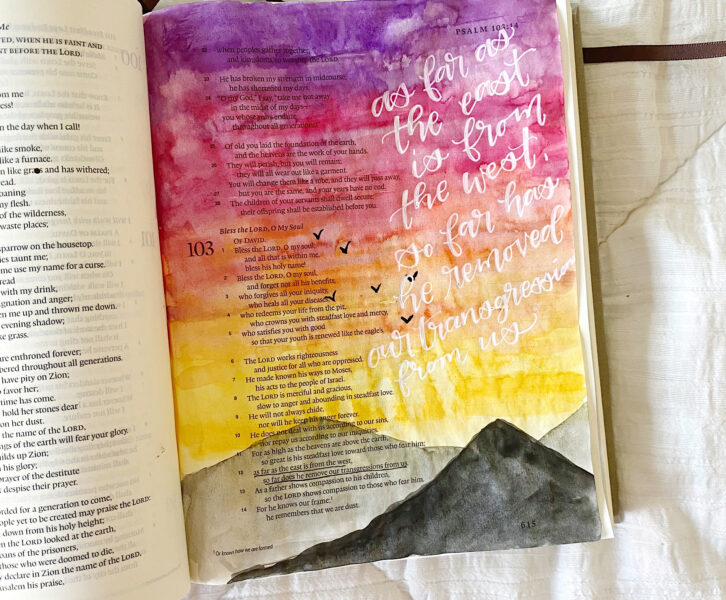 ED, WHEN HE IS FAINT AND
NT BEFORE THE LORD.
om me
ess!
n the day when I call!
like smoke,
like a furnace.
n like grass and has withered;
read.
oaning
my flesh.
of the wilderness,
waste places;
sparrow on the housetop.
ies taunt me;
me use my name for a curse.
read
with my drink,
ignation and anger;
en me up and thrown me down.
evening shadow;
ke grass.
are enthroned forever;
bered throughout all generations.
have pity on Zion;
o favor her;
time has come.
hold her stones dear
on her dust.
the name of the LORD,
ngs of the earth will fear your glory.
uilds up Zion;
his glory;
ayer of the destitute
despise their prayer.
orded for a generation to come,
ople yet to be created may praise the LORD:
down from his holy height;
n the LORD looked at the earth,
oans of the prisoners,
those who were doomed to die,
y declare in Zion the name of the LORD,
usalem his praise,
PSALM 103:14
22 when peoples gather together,
and kingdoms, to worship the LORD.
23 He has broken my strength in midcourse;
he has shortened my days.
24 "O my God," I say, "take me not away
in the midst of my days—
you whose years endure
throughout all generations!"
25 Of old you laid the foundation of the earth,
and the heavens are the work of your hands.
26 They will perish, but you will remain;
they will all wear out like a garment.
You will change them like a robe, and they will pass away,
27 but you are the same, and your years have no end.
28 The children of your servants shall dwell secure;
their offspring shall be established before you.
Bless the LORD, O My Soul
103 OF DAVID.
1 Bless the LORD, O my soul,
and all that is within me,
bless his holy name!
2 Bless the LORD, O my soul,
and forget not all his benefits,
3 who forgives all your iniquity,
who heals all your diseases,
4 who redeems your life from the pit,
who crowns you with steadfast love and mercy,
5 who satisfies you with good
so that your youth is renewed like the eagle's.
6 The LORD works righteousness
and justice for all who are oppressed.
7 He made known his ways to Moses,
his acts to the people of Israel.
8 The LORD is merciful and gracious,
slow to anger and abounding in steadfast love.
9 He will not always chide,
nor will he keep his anger forever.
10 He does not deal with us according to our sins,
nor repay us according to our iniquities.
11 For as high as the heavens are above the earth,
so great is his steadfast love toward those who fear him;
12 as far as the east is from the west,
so far does he remove our transgressions from us.
13 As a father shows compassion to his children,
so the LORD shows compassion to those who fear him.
14 For he knows our frame;¹
he remembers that we are dust.
¹ Or knows how we are formed
615
as far as
the east
is from
the west,
so far has
he removed
our transgressions
from us